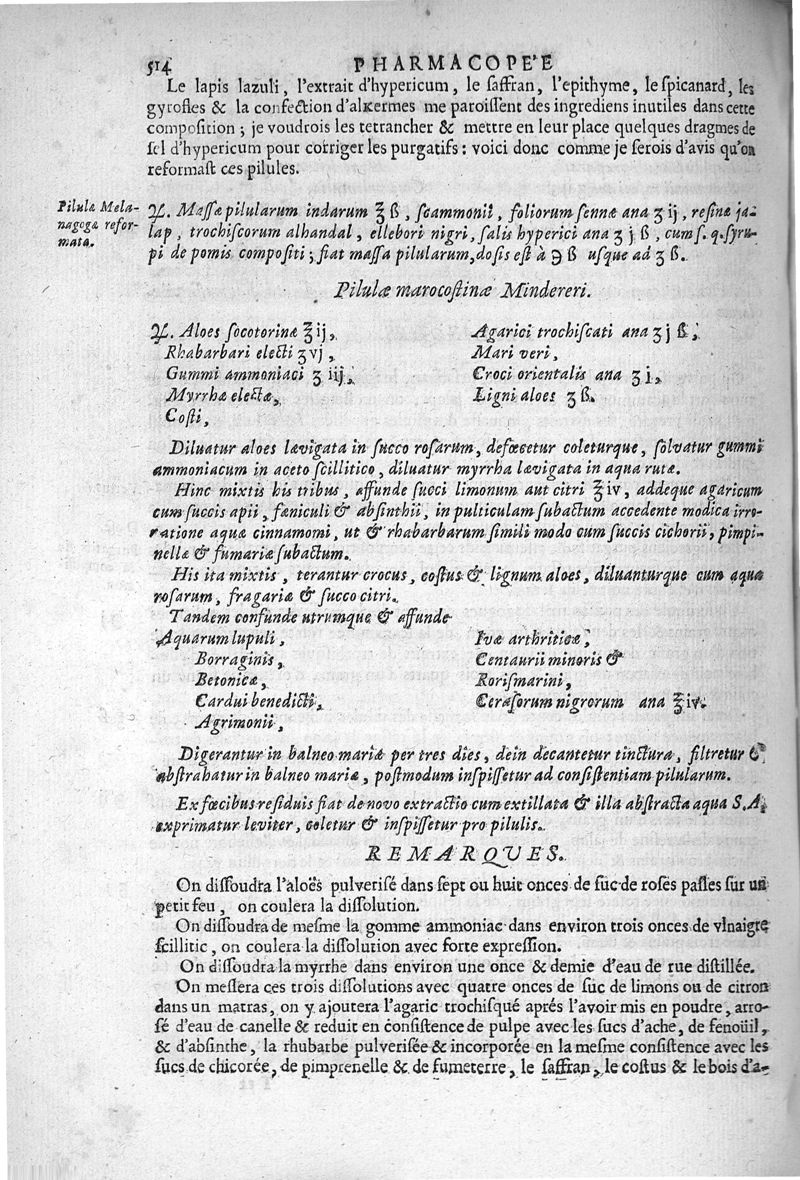 514 PHARMACOPE'E
Le lapis lazuli, l'extrait d'hypericum, le saffran, l'epithyme, le spicanard, les
gyrofles & la confection d'alkermes me paroissent des ingrediens inutiles dans cette
composition ; je voudrois les retrancher & mettre en leur place quelques dragmes de
sel d'hypericum pour corriger les purgatifs : voici donc comme je serois d'avis qu'on
reformast ces pilules.
Pilulæ Mela-
nagogæ refor-
matæ.
♃. Massæ pilularum indarum ℥ ß, scammonii, foliorum sennæ ana ʒ ij, resinæ ja-
lap, trochiscorum alhandal, ellebori nigri, salis hyperici ana ʒ j ß, cum s. q. syru-
pi de pomis compositi ; fiat massa pilularum, dosis est à ℈ ß usque ad ʒ ß.
Pilulæ marocostinæ Mindereri.
♃. Aloes socotorinæ ℥ij,
Rhabarbari electi ʒvj,
Gummi ammoniaci ʒ iij,
Myrrhæ electæ,
Costi,
Agarici trochiscati ana ʒ j ß,
Mari veri,
Croci orientalis ana ʒ j,
Ligni aloes ʒ ß.
Diluatur aloes lævigata in succo rosarum, defœcetur coleturque, solvatur gummi
ammoniacum in aceto scillitico, diluatur myrrha lævigata in aqua rutæ.
Hinc mixtis his tribus, affunde succi limonum aut citri ℥iv, addeque agaricum
cum succis apii, fæniculi & absinthii, in pulticulam subactum accedente modica irro-
ratione aquæ cinnamomi, ut & rhabarbarum simili modo cum succis cichorii, pimpi-
nellæ & fumariæ subactum.
His ita mixtis, terantur crocus, costus & lignum aloes, diluanturque cum aqua
rosarum, fragariæ & succo citri.
Tandem confunde utrumque & affunde
Aquarum lupuli,
Borraginis,
Betonicæ,
Cardui benedicti,
Agrimonii,
Ivæ arthriticæ,
Centaurii minoris &
Rorismarini,
Cerasorum nigrorum ana ℥iv.
Digerantur in balneo mariæ per tres dies, dein decantetur tinctura, filtretur &
abstrahatur in balneo mariæ, postmodum inspissetur ad consistentiam pilularum.
Ex fœcibus residuis fiat de novo extractio cum extillata & illa abstracta aqua S. A.
exprimatur leviter, coletur & inspissetur pro pilulis.
REMARQUES.
On dissoudra l'aloës pulverisé dans sept ou huit onces de suc de roses pasles sur un
petit feu, on coulera la dissolution.
On dissoudra de mesme la gomme ammoniac dans environ trois onces de vinaigre
scillitic, on coulera la dissolution avec forte expression.
On dissoudra la myrrhe dans environ une once & demie d'eau de rue distillée.
On meslera ces trois dissolutions avec quatre onces de suc de limons ou de citron
dans un matras, on y ajoutera l'agaric trochisqué aprés l'avoir mis en poudre, arro-
sé d'eau de canelle & reduit en consistence de pulpe avec les sucs d'ache, de fenoüil,
& d'absinthe, la rhubarbe pulverisée & incorporée en la mesme consistence avec les
sucs de chicorée, de pimprenelle & de fumeterre, le saffran, le costus & le bois d'a-